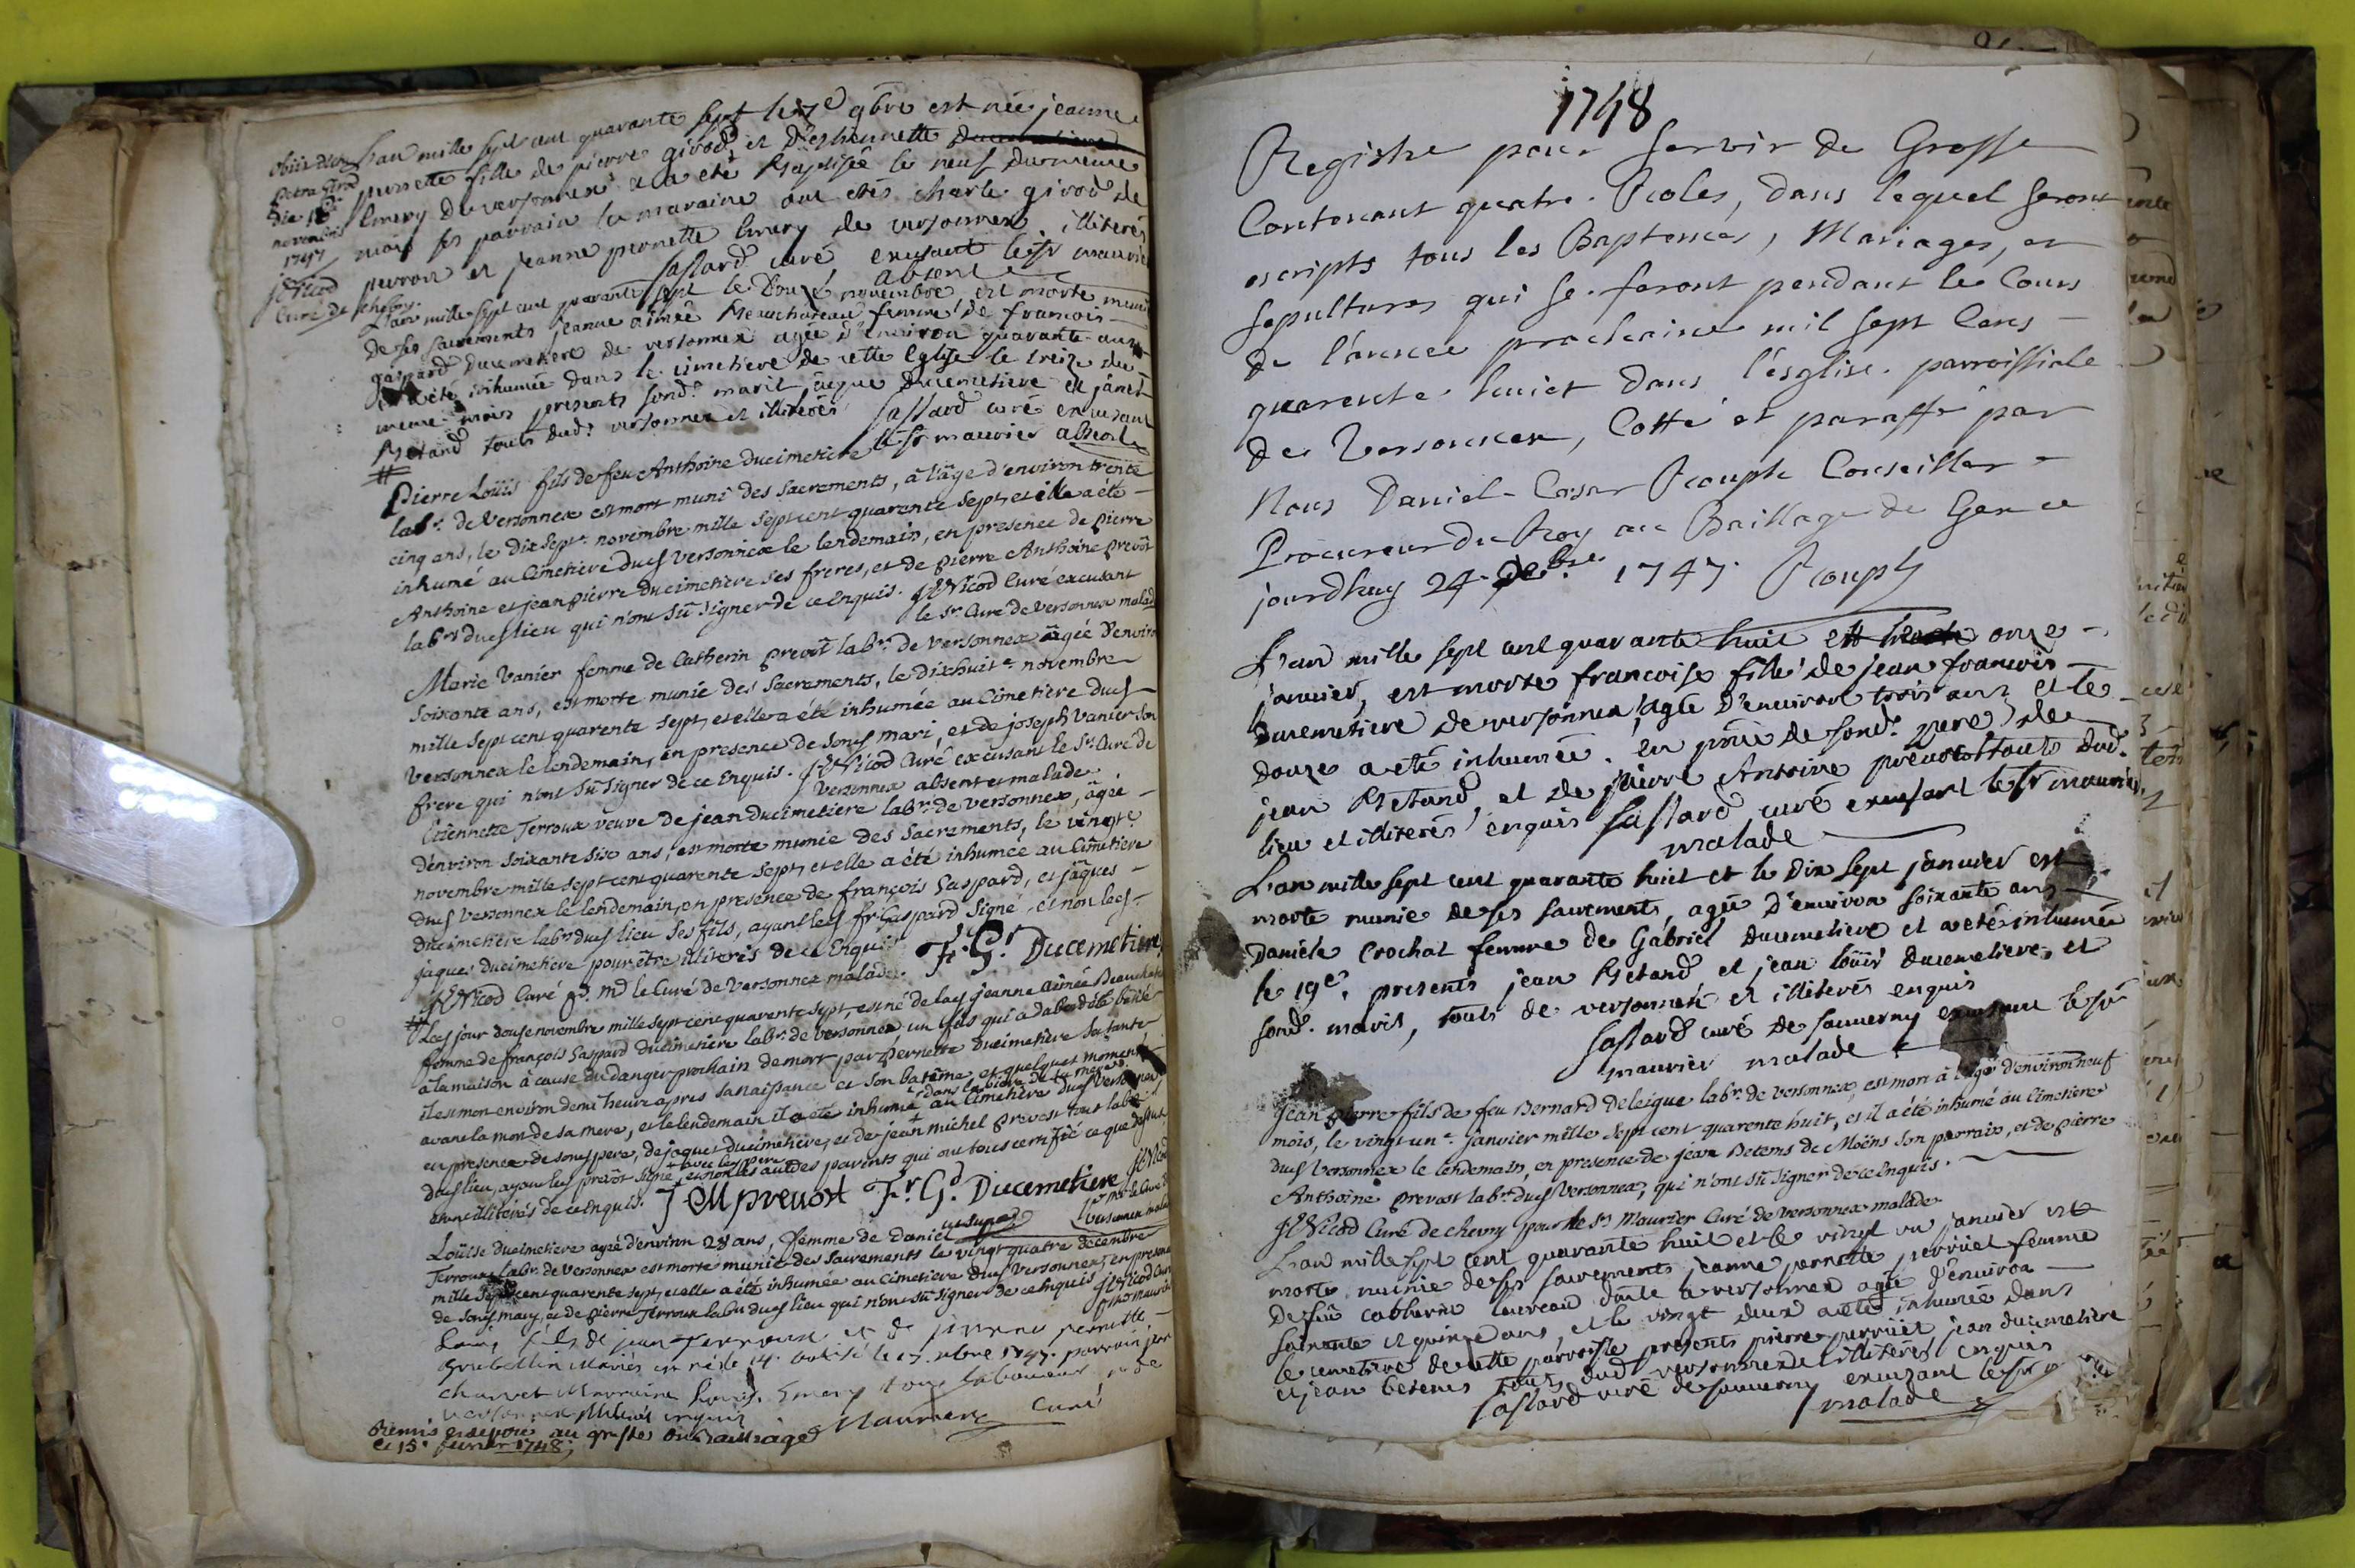 L'an mille sept cent quarante sept le 7e 9bre est née jeanne
pernette fille de pierre girod et d'esthiennette
Emery de versonnex a a été Baptisée le neuf du meme
mois ses parrain la maraine ont étés charle girod de
pevron et jeanne pernette Emery de versonnex illiterés
Castard curé excusant le Sr maurier
absent
obiit
die 18
novembris
1747
J Nicod
Curé de chevry
L'an mille sept cent quarante sept le douzé novembre est morte munie
de ses sacrements jeanne aimée Beauchateau femme de francois
gaspard Ducemetiere de versonnex agée d'environ quarante ans
et a été inhumée dans le cimetiere de cette Eglise le treize du
meme mois presents sond. marit jaque Ducemetiere et
Betand touts dud. versonnex et illiterés Castard curé excusant
le Sr maurier absent
#
Pierre Loüis fils de feu Anthoine ducimetiere
labr. de Versonnex est mort muni des Sacrements, à l'âge d'environ trente
cinq ans, le dix sept.e novembre mille sept cent quarante sept, et il a été
inhumé au Cimetiere dud Versonnex le lendemain, en presence de pierre
Anthoine et jean pierre ducimetiere ses freres, et de pierre Anthoine prevôt
labrs dud lieu qui n'ont sû signer de ce enquis. J Nicod Curé excusant
le Sr. Curé de Versonnex malade
Marie Vanier femme de Catherin prevôt labr. de Versonnex âgée d'environ
soixante ans, est morte, munie des Sacrements, le dixhuit.e novembre
mille sept cent quarente sept, et elle a été inhumée au Cimetiere dud
Versonnex le lendemain, en presence de sond mari, et de joseph Vanier son
frere qui n'ont sû signer de ce enquis. J Nicod Curé excusant le Sr. Curé de
Versonnex absent et malade
Etiennette Terroux veuve de jean ducimetiere labr. de Versonnex, âgée
d'environ soixante six ans, est morte munie des Sacrements, le vingt.e
novembre mille sept cent quarente sept, et elle a été inhumée au Cimetiere
dud Versonnex le lendemain, en presence de françois Gaspard, et jâques
ducimetiere labrs dud lieu ses fils, ayant led fr Gaspard signé, et non led
jaques ducimetiere pour être illiteris de ce Enquis. Fr. Gd. Ducemetiere
J Nicod Curé pr. mr le Curé de Versonnex malade.
# Led jour douse novembre mille sept cent quarente sept, est né de lad jeanne aimée Beauchateau
femme de françois Gaspard ducimetiere labr. de Versonnex un fils qui a d'abord été batisé
à la maison à cause du danger prochain de mort par pernette ducimetiere sa tante
il est mort environ demi heure apres sa naissance et son batême, et quelques moments
avant la mort de sa mere, et le lendemain il a été inhumé dans la biere de sa mere au Cimetiere dud Versonnex
en presence de sond pere, de jaques ducimetiere, et de jean michel prevost tous labrs
dud lieu, ayant led prevôt signé avec led pere et non les autres parents qui ont tous certifié ce que dessus
étant illiterés de ce enquis. J M prevost Fr. Gd. Ducemetiere J Nicod
Loüise ducimetiere agée d'environ 28 ans, femme de Daniel
Terroux labr. de Versonnex est morte munie des Sacrements le vingt quatre decembre
mille sept cent quarente sept, et elle a été inhumée au Cimetiere dud Versonnex, en presence
de sond mary, et de pierre Terroux labr dud lieu qui n'ont sû signer de ce enquis J Nicod Curé
Louis fils de jean Terroux et de pernette
mariés est né le 14. batisé le 17. xbre 1747. parrain jean
charvet Marraine Louise Emery tous laboureurs de
versonnex illiterés enquis Maurier Curé
Remis et deposé au greffe du Bailliage
ce 15. fevrier 1748.
1748
Registre pour servir de Grosse
Contenant quatre Rolles, dans lequel seront
escripts tous les Baptemes, Mariages, et
sepultures qui se feront pendant le Cours
de l'année prochaine mil sept Cens
quarente huict dans l'ésglise parroissiale
de Versonnex, Cotté et paraffé par
Nous Daniel Cesar Rouph Conseiller
Procureur du Roy au Baillage de Gex ce
jourdhuy 24 Xbre 1747. Rouph
L'an mille sept cent quarante huit onze
janvier, est morte francoise fille de jean francois
ducemetiere de versonnex, agée d'environ trois ans et le
douze a eté inhumée en pñce de sond. pere de
jean Betand, et de pierre Antoine prevost touts dud.
lieu et illiterés enquis Castard curé excusant le Sr maurier
malade
L'an mille sept cent quarante huit et le dix sept janvier est
morte munie de ses sacrements, agée d'environ soixante ans
Daniele Crochat femme de Gabriel ducemetiere et a eté inhumée
le 19e. presents jean Betand et jean loüis ducemetiere et
sond. marit, touts de versonnex et illiterés enquis
Castard curé de sauverny excusant le Sr
maurier malade
Jean pierre fils de feu Bernard Deleigue labr. de Versonnex, est mort à l'âge d'environ neuf
mois, le vingt un.e janvier mille sept cent quarente huit, et il a été inhumé au Cimetiere
dud Versonnex le lendemain, en presence de jean Betems de Moëns son parrain, et de pierre
Anthoine prevost labr. dud Versonnex, qui n'ont sû signer de ce enquis.
J Nicod Curé de chevry pour le Sr Maurier Curé de Versonnex malade
L'an mille sept cent quarante huit et le vingt un janvier est
morte munie de ses sacrements jeanne pernette perriiet femme
de feu catherin de versonnex agée d'environ
soixante et quinze ans, et le vingt deux a eté inhumée dans
le cemetiere de cette parroisse presents pierre perriiet, jean ducemetiere
et jean betems touts dud versonnex et illiterés enquis
Castard curé de sauverny excusant le Sr
malade